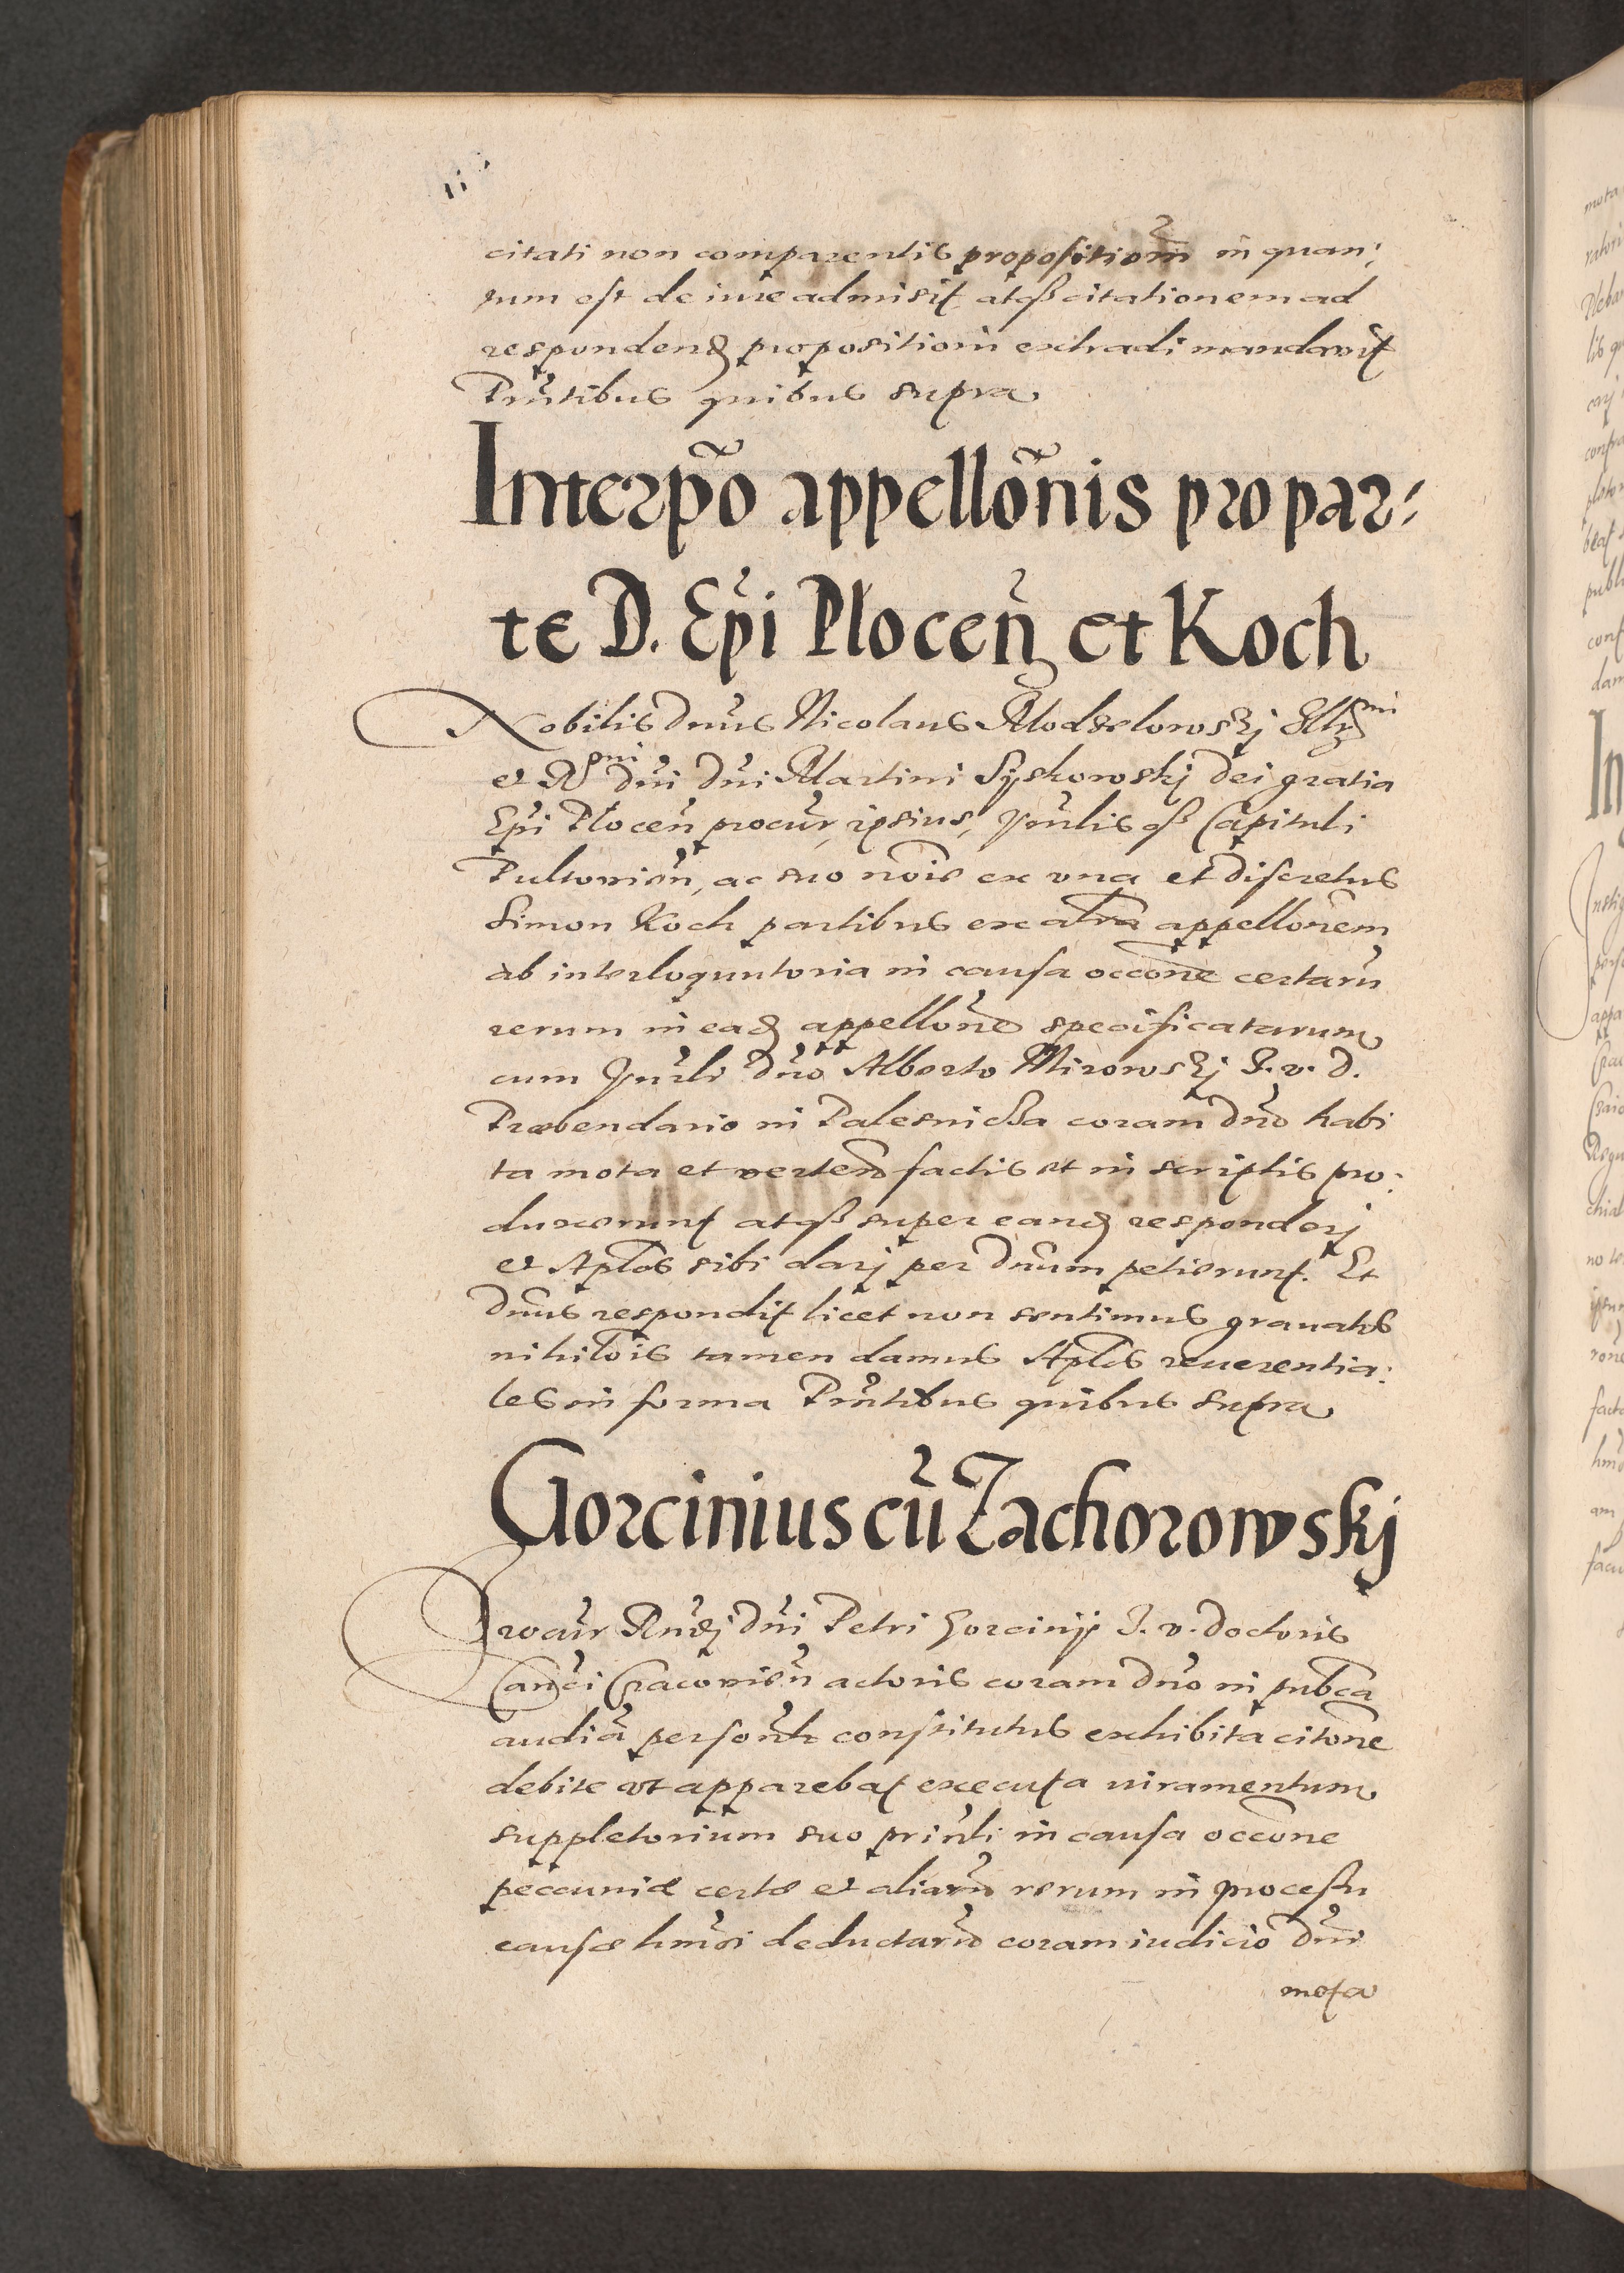 citati non comparentis propositiom̃ in quan:
tum est de iure admisit atqß citationem ad
respondend propositioni extradi mandavit
Pñtibus quibus supra
Interpõ appellõnis pro par:
te D. Epĩ Plocen̄ et Koch
Nobilis dñus Nicolaus Modzelowskj Illmi
et Rmi dñi dñi Martini Syskowskj dei gratia
Epĩ Plocen̄ procur̃ ipsius, Vñlis qß Capituli
Pultovien̄, ac suo nõie ex una et discretus
Simon Koch partibus ex altra appellõnem
ab interloquutoria in causa occõne certarũ
rerum in ead appellõne specificatarum
cum Vñrli dño Alberto Mirowskj J. v. d.
Præbendario in Palesnicza coram dño habi
ta mota et verten̄ factis et in scriptis pro:
duxerunt atqß super eand responderj
et Apłos sibi darj per dñum petierunt. Et
Dñus respondit licet non sentimus gravatos
nihilõis tamen damus Apłos reverentia:
les in forma Pñtibus quibus supra
Gorcinius cũ Zachorowskj
Procur̃ Rndj dñi Petri Gorcinij J. v. doctoris
Canci Cracovien̄ actoris coram dño in pubca
audiã personlr constitutus exhibita citõne
debite ut apparebat executa iuramentum
suppletorium suo prinli in causa occõne
peccuniæ certæ et aliarũ rerum in processu
causæ hmõi deductarũ coram iudicio dñi
mota